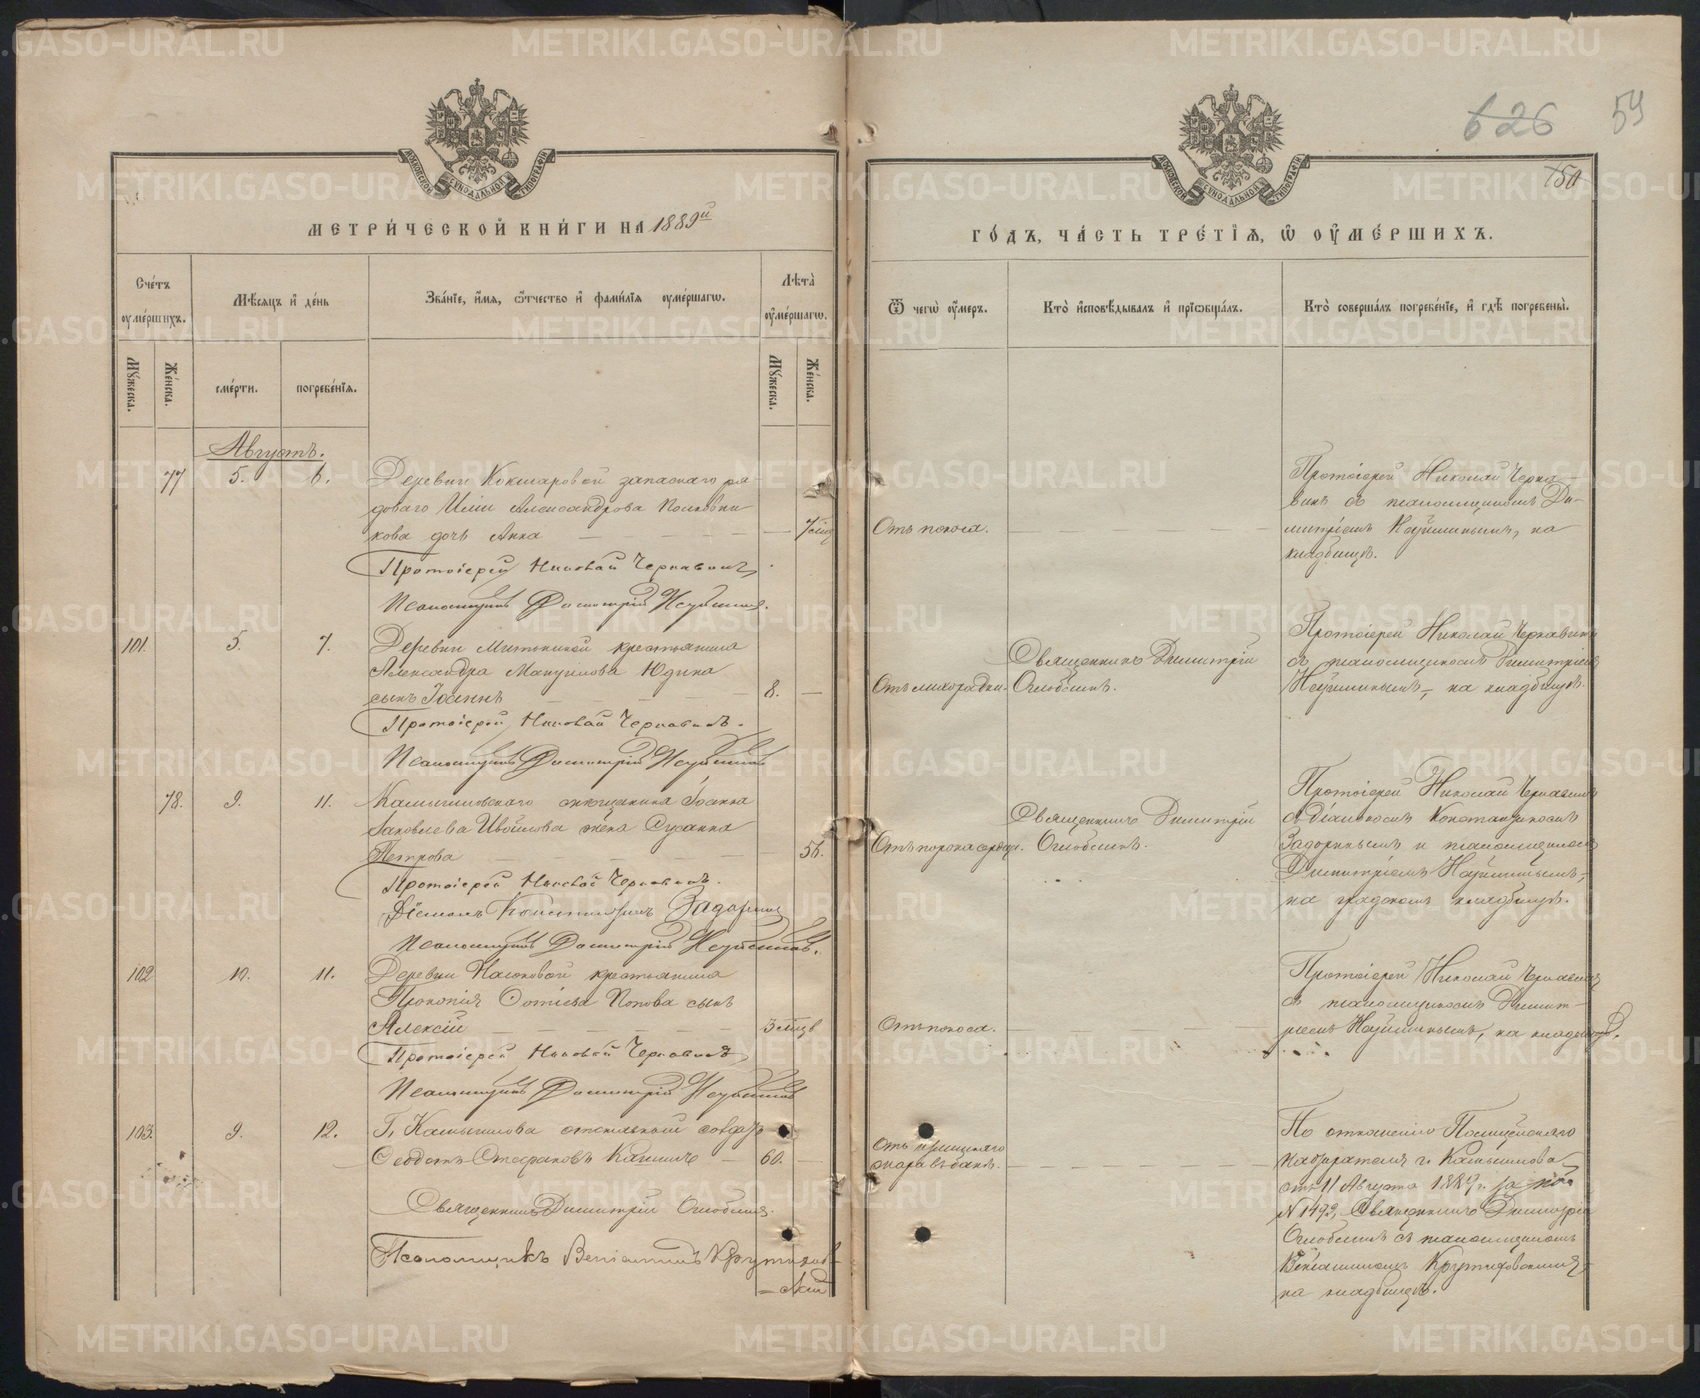 626 59
750
МЕТРИ́ЧЕСКОЙ КНИ́ГИ НА 1889й
ГО́ДЪ, ЧА́СТЬ ТРЕ́ТІѦ, Ѡ ОУМЕ́РШИХЪ.
Сче́тъ оуме́ршихъ.
Мѣсяцъ и де́нь
Зва́ніе, и́мя, ѻтчество и фами́лія оуме́ршагѡ.
Лѣта̀ оуме́ршагѡ.
Мꙋжеска. Же́нска. сме́рти. погребе́нія. Мꙋжеска. Же́нска.
Ѿ чегѡ̀ оу́меръ.
Кто̀ исповѣ́дывалъ и прїѡбща́лъ.
Кто̀ соверша́лъ погребе́ніе, и гдѣ̀ погребены̀.
Августъ.
77 5. 6. Деревни Кокшаровой запаснаго ря-
доваго Иліи Александрова Половни
кова дочь Анна 7 мѣс
Протоіерей Николай Чернавинъ
Псаломщикъ Димитрій Неуйминъ.
Отъ поноса.
Протоіерей Николай Черна
винъ съ псаломщикомъ Ди-
митріемъ Неуйминымъ, на
кладбищѣ.
101. 5. 7. Деревни крестьянина
Александра Юдина
сынъ Іоаннъ 8.
Протоіерей Николай Чернавинъ.
Псаломщикъ Димитрій Неуйминъ
Отъ лихорадки.
Священникъ Димитрій
Оглоблинъ.
Протоіерей Николай Чернавинъ
съ псаломщикомъ Димитріемъ
Неуйминымъ, на кладбищѣ.
78. 9. 11. Камышловскаго Іоанна
Іаковлева жена Сусанна
Петрова 56.
Протоіерей Николай Чернавинъ.
Діаконъ Константинъ Задоринъ
Псаломщикъ Димитрій Неуйминъ.
Отъ порока сердца.
Священникъ Димитрій
Оглоблинъ.
Протоіерей Николай Чернавинъ
съ Діакономъ Константиномъ
Задоринымъ и псаломщикомъ
Димитріемъ Неуйминымъ,
на градскомъ кладбищѣ.
102 10. 11. Деревни крестьянина
Прокопія Попова сынъ
Алексій 3 мѣс
Протоіерей Николай Чернавинъ
Псаломщикъ Димитрій Неуйминъ
Отъ поноса.
Протоіерей Николай Чернавинъ
съ псаломщикомъ Димит-
ріемъ Неуйминымъ, на кладбищѣ.
103. 9. 12. Г. Камышлова солдатъ
Стефановъ 60.
Священникъ Димитрій Оглоблинъ.
Псаломщикъ Веніаминъ Крутихов-
скій
Отъ
жара въ банѣ.
По отношенію Полицейскаго
надзирателя г. Камышлова
отъ 11 Августа 1889 г. за
№ 1492, Священникъ Димитрій
Оглоблинъ съ псаломщикомъ
Веніаминомъ Крутиховскимъ
на кладбищѣ.